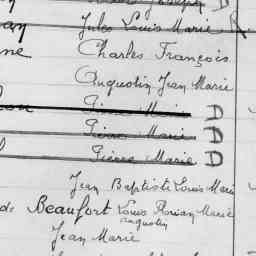 Jules Louis Marie R
Charles François
Augustin Jean Marie
Pierre Marie D
Pierre Marie D
Pierre Marie D
Jean Baptiste Louis Marie
de Beaufort Louis Florian Marie
Augustin
Jean Marie